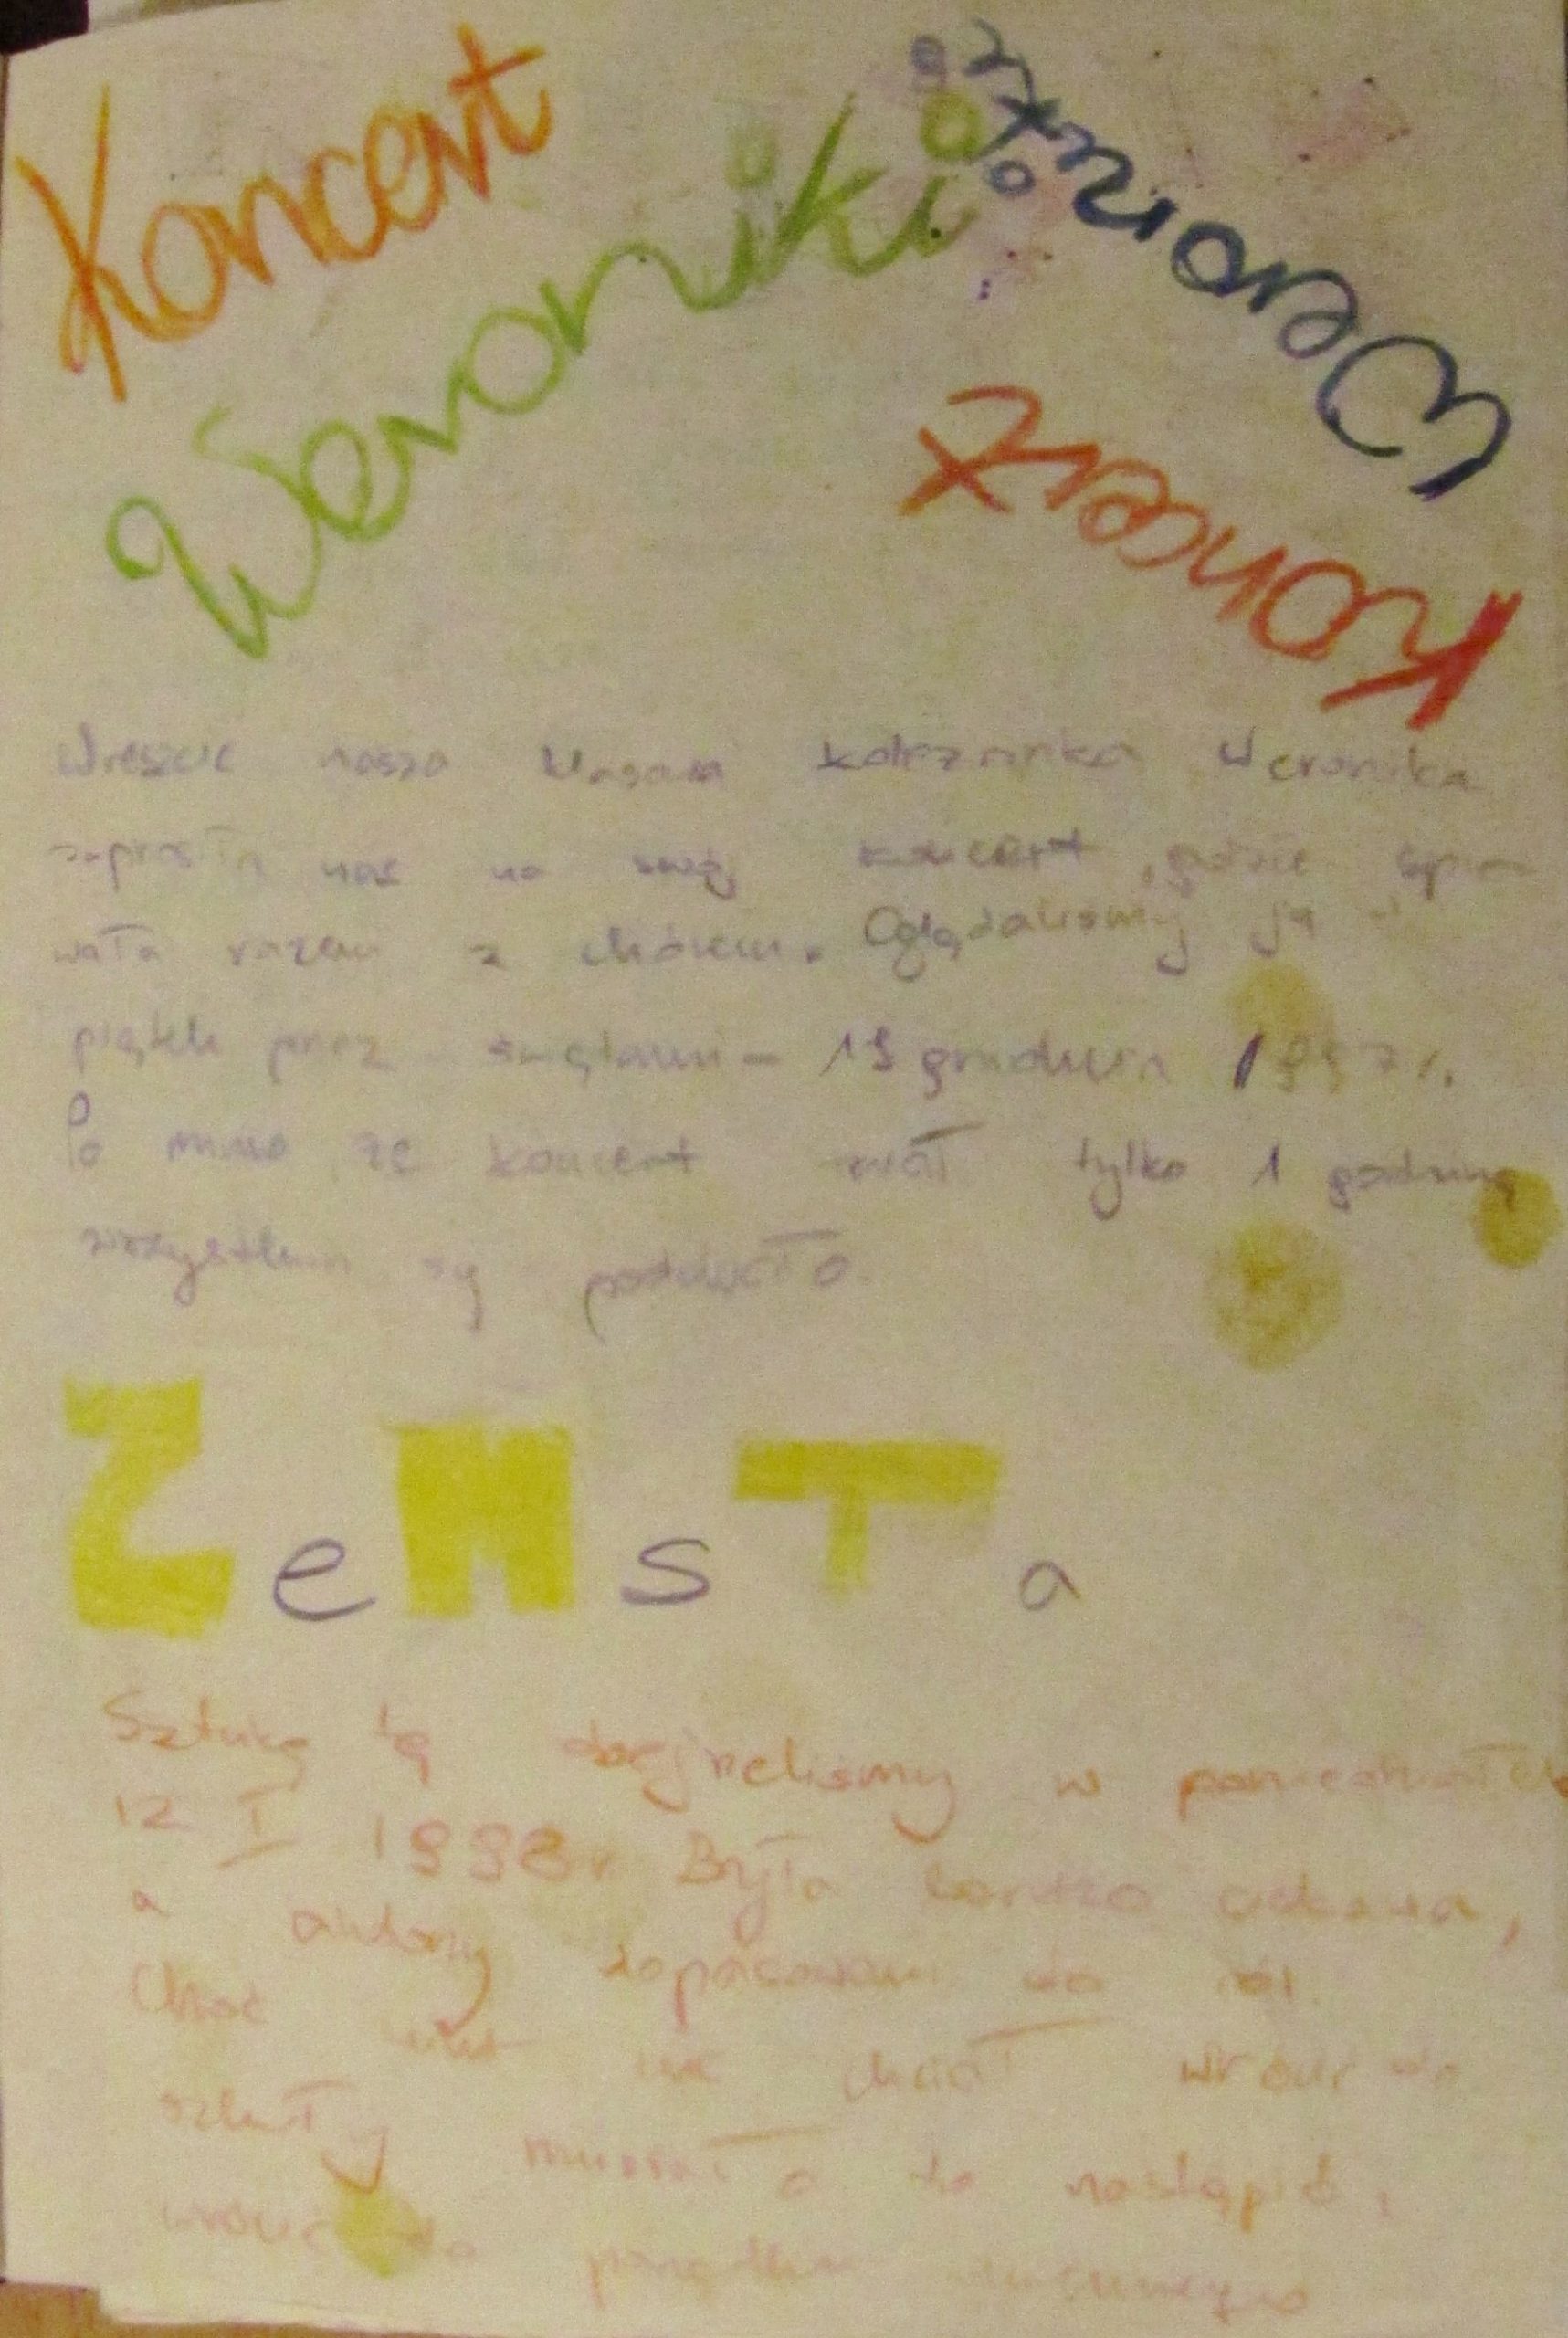 Koncert
Weroniki
Weroniki
Koncert
Wreszcie nasza koleżanka Weronika
zaprosiła nas na swój koncert, gdzie śpie
wała razem z chórem. Oglądaliśmy ją w
piątek przez świętami - 19 grudnia 1997 r.
Po mimo że koncert trwał tylko 1 godzinę
wszystkim się podobało.
ZeMsTa
Sztukę tę obejrzeliśmy w poniedziałek
12 I 1998 r Była bardzo ciekawa,
a aktorzy dopasowani do ról.
Choć nikt nie chciał wrócić do
szkoły musiało to nastąpić,
wrócić do